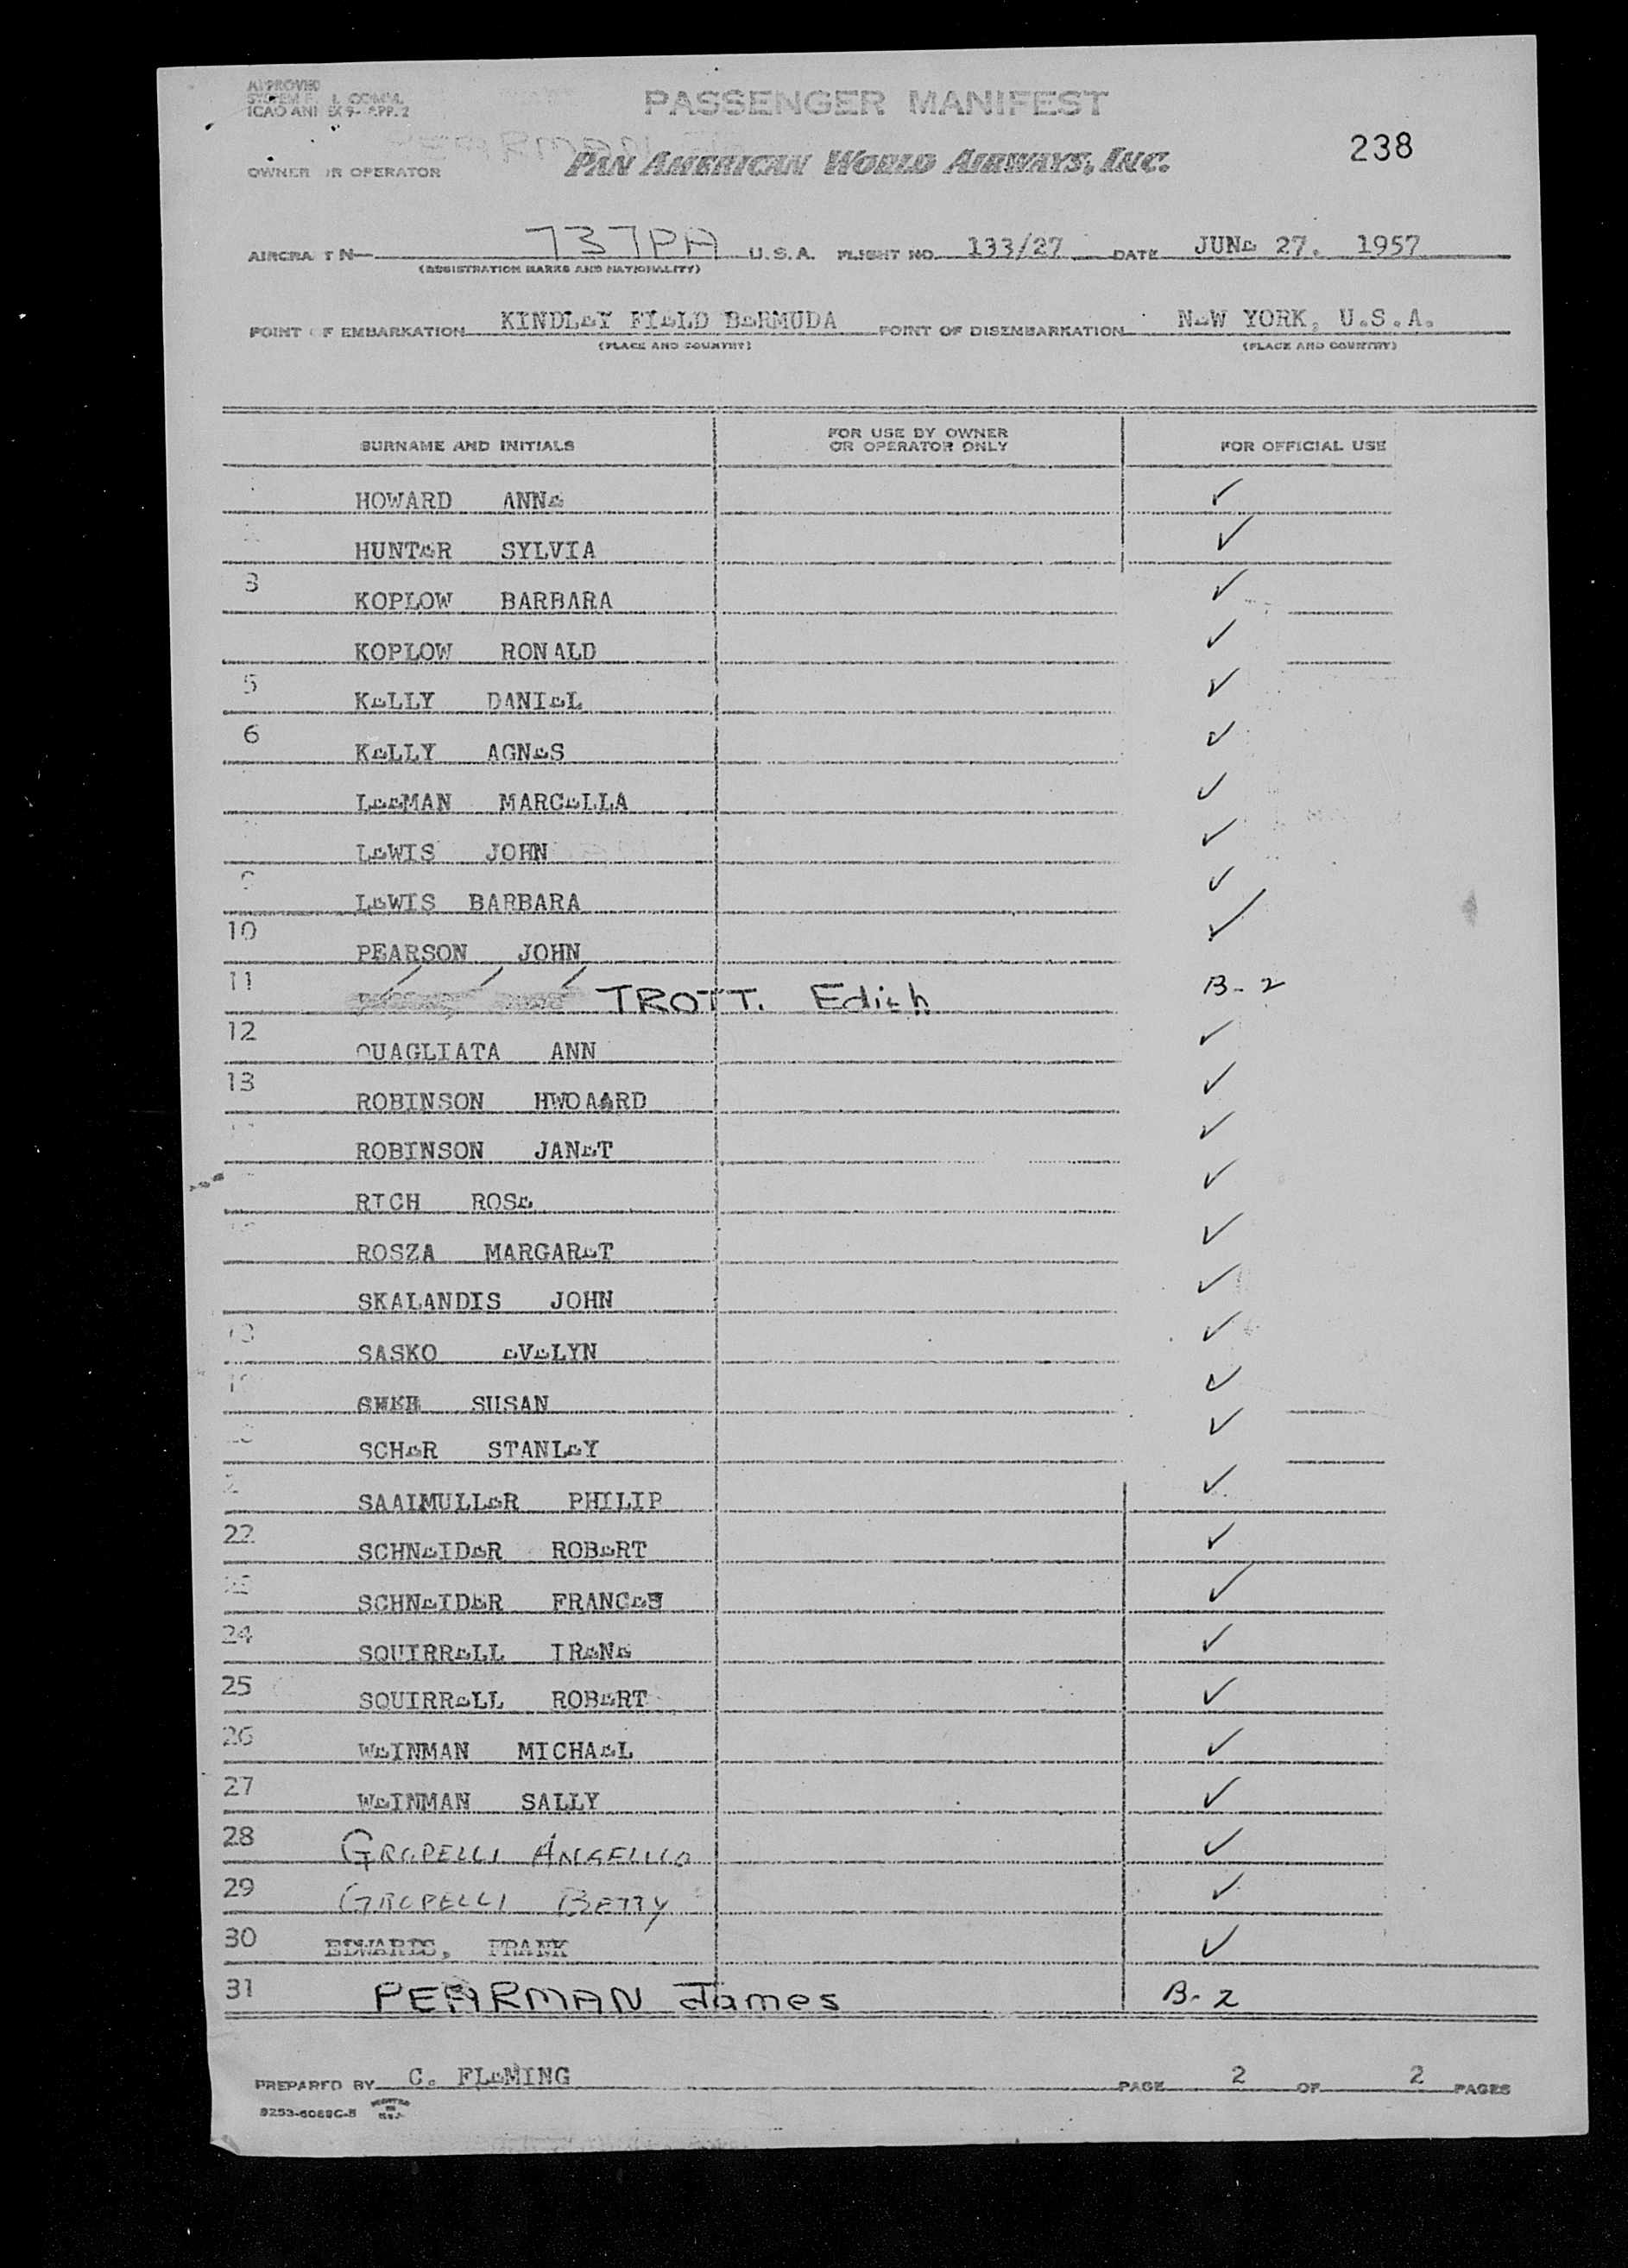 APPROVED
ICAO ANNEX 9-APP. 2
PASSENGER MANIFEST
238
OWNER OR OPERATOR PAN AMERICAN WORLD AIRWAYS, INC.
AIRCRAFT N— 737PA U.S.A. FLIGHT NO. 133/27 DATE JUNe 27. 1957
(REGISTRATION MARKS AND NATIONALITY)
POINT OF EMBARKATION KINDLeY FIeLD BeRMUDA POINT OF DISEMBARKATION NeW YORK, U.S.A.
(PLACE AND COUNTRY) (PLACE AND COUNTRY)
SURNAME AND INITIALS FOR USE BY OWNER OR OPERATOR ONLY FOR OFFICIAL USE
HOWARD ANNe ✓
HUNTeR SYLVIA ✓
3 KOPLOW BARBARA ✓
KOPLOW RONALD ✓
5 KeLLY DANIeL ✓
6 KeLLY AGNeS ✓
LeeMAN MARCeLLA ✓
LeWIS JOHN ✓
9 LeWIS BARBARA ✓
10 PEARSON JOHN ✓
11 TROTT. Edith B-2
12 QUAGLIATA ANN ✓
13 ROBINSON HWOAARD ✓
ROBINSON JANeT ✓
RICH ROSe ✓
ROSZA MARGAReT ✓
SKALANDIS JOHN ✓
18 SASKO eVeLYN ✓
19 SUSAN ✓
SCHeR STANLeY ✓
2 SAAIMULLeR PHILIP ✓
22 SCHNeIDeR ROBeRT ✓
SCHNeIDER FRANCeS ✓
24 SQUIRReLL IReNe ✓
25 SQUIRReLL ROBeRT ✓
26 WeINMAN MICHAeL ✓
27 WeINMAN SALLY ✓
28 GROPELLI ✓
29 GROPELLI BETTY ✓
30 EDWARDS, FRANK ✓
31 PEARMAN James B-2
PREPARED BY C. FLeMING PAGE 2 OF 2 PAGES
9253-6089C-5 PRINTED IN U.S.A.